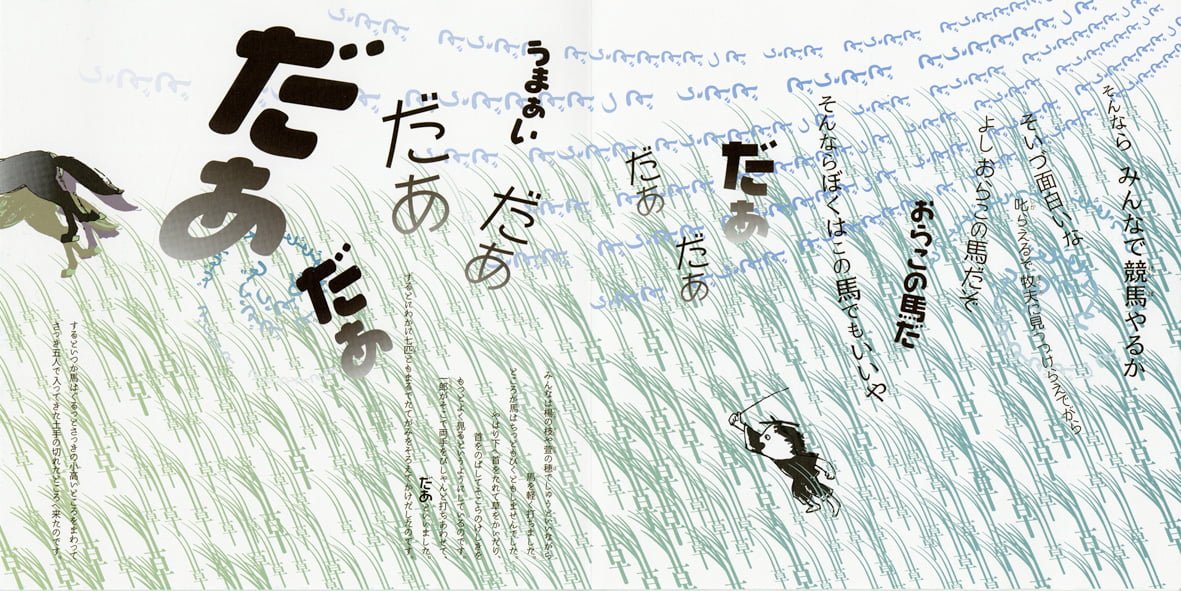 そんなら みんなで競馬やるか
そいつ面白いな
叱らえるぞ 牧夫に見っつけらえでがら
よしおらこの馬だぞ
おらこの馬だ
そんならぼくはこの馬でもいいや
だあ
だあ
だあ
うまあい
だあ
だあ
だあ
だあ
みんなは楊の枝や萱の穂でしゅうといいながら
馬を軽く打ちました。
ところが馬はちっともびくともしませんでした。
やはり下へ首をたれて草をかいだり、
首をのばしてそこらのけしきを
もっとよく見るというようにしているのです。
一郎がそこで両手をぴしゃんと打ちあわせて、
だあといいました。
するとにわかに七匹ともまるでたてがみをそろえてかけだしたのです。
するといつか馬はぐるっとさっきの小高いところをまわって、
さっき五人で入ってきた土手の切れたところへ来たのです。
草